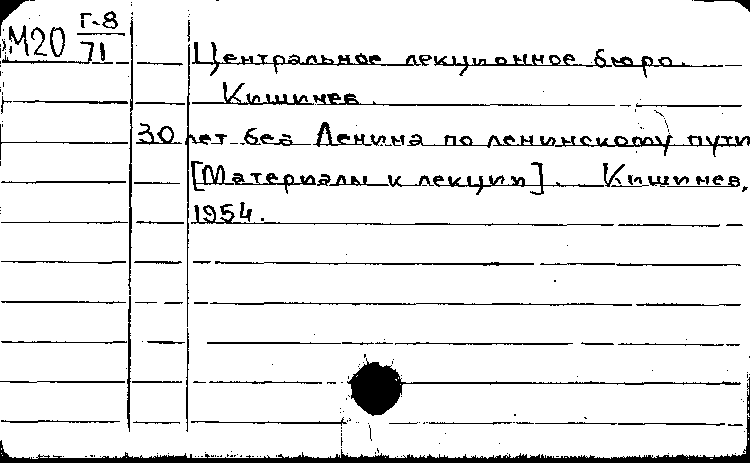 М20 Г-8
71
Центральное лекционное бюро.
Кишинев.
30 лет без Ленина по ленинскому пути
[Материалы к лекции]. Кишинев,
1954.